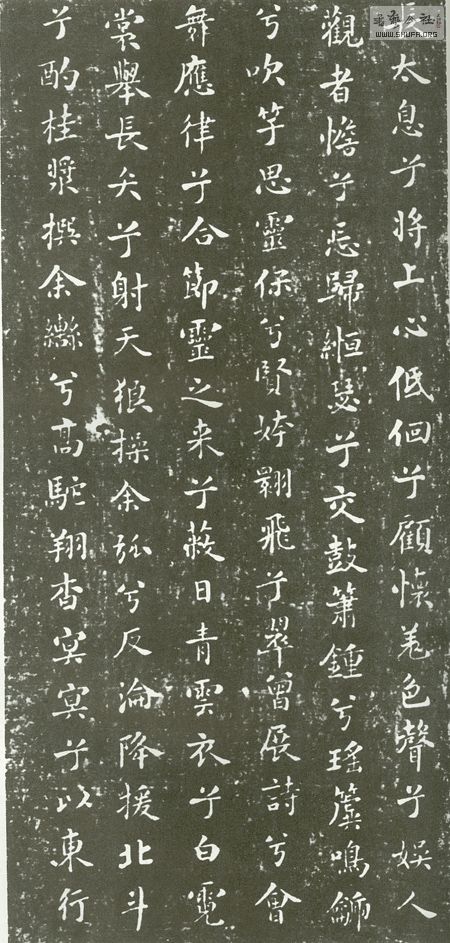 書法公社
WWW.SHUFA.ORG
長太息兮將上心低佪兮顧懷羌色聲兮娛人
觀者憺兮忘歸緪瑟兮交鼓簫鍾兮瑤簴鳴䶵
兮吹竽思靈保兮賢姱翾飛兮翠曾展詩兮會
舞應律兮合節靈之来兮蔽日青雲衣兮白霓
裳舉長矢兮射天狼操余弧兮反淪降援北斗
兮酌桂漿撰余轡兮高駝翔杳冥冥兮以東行